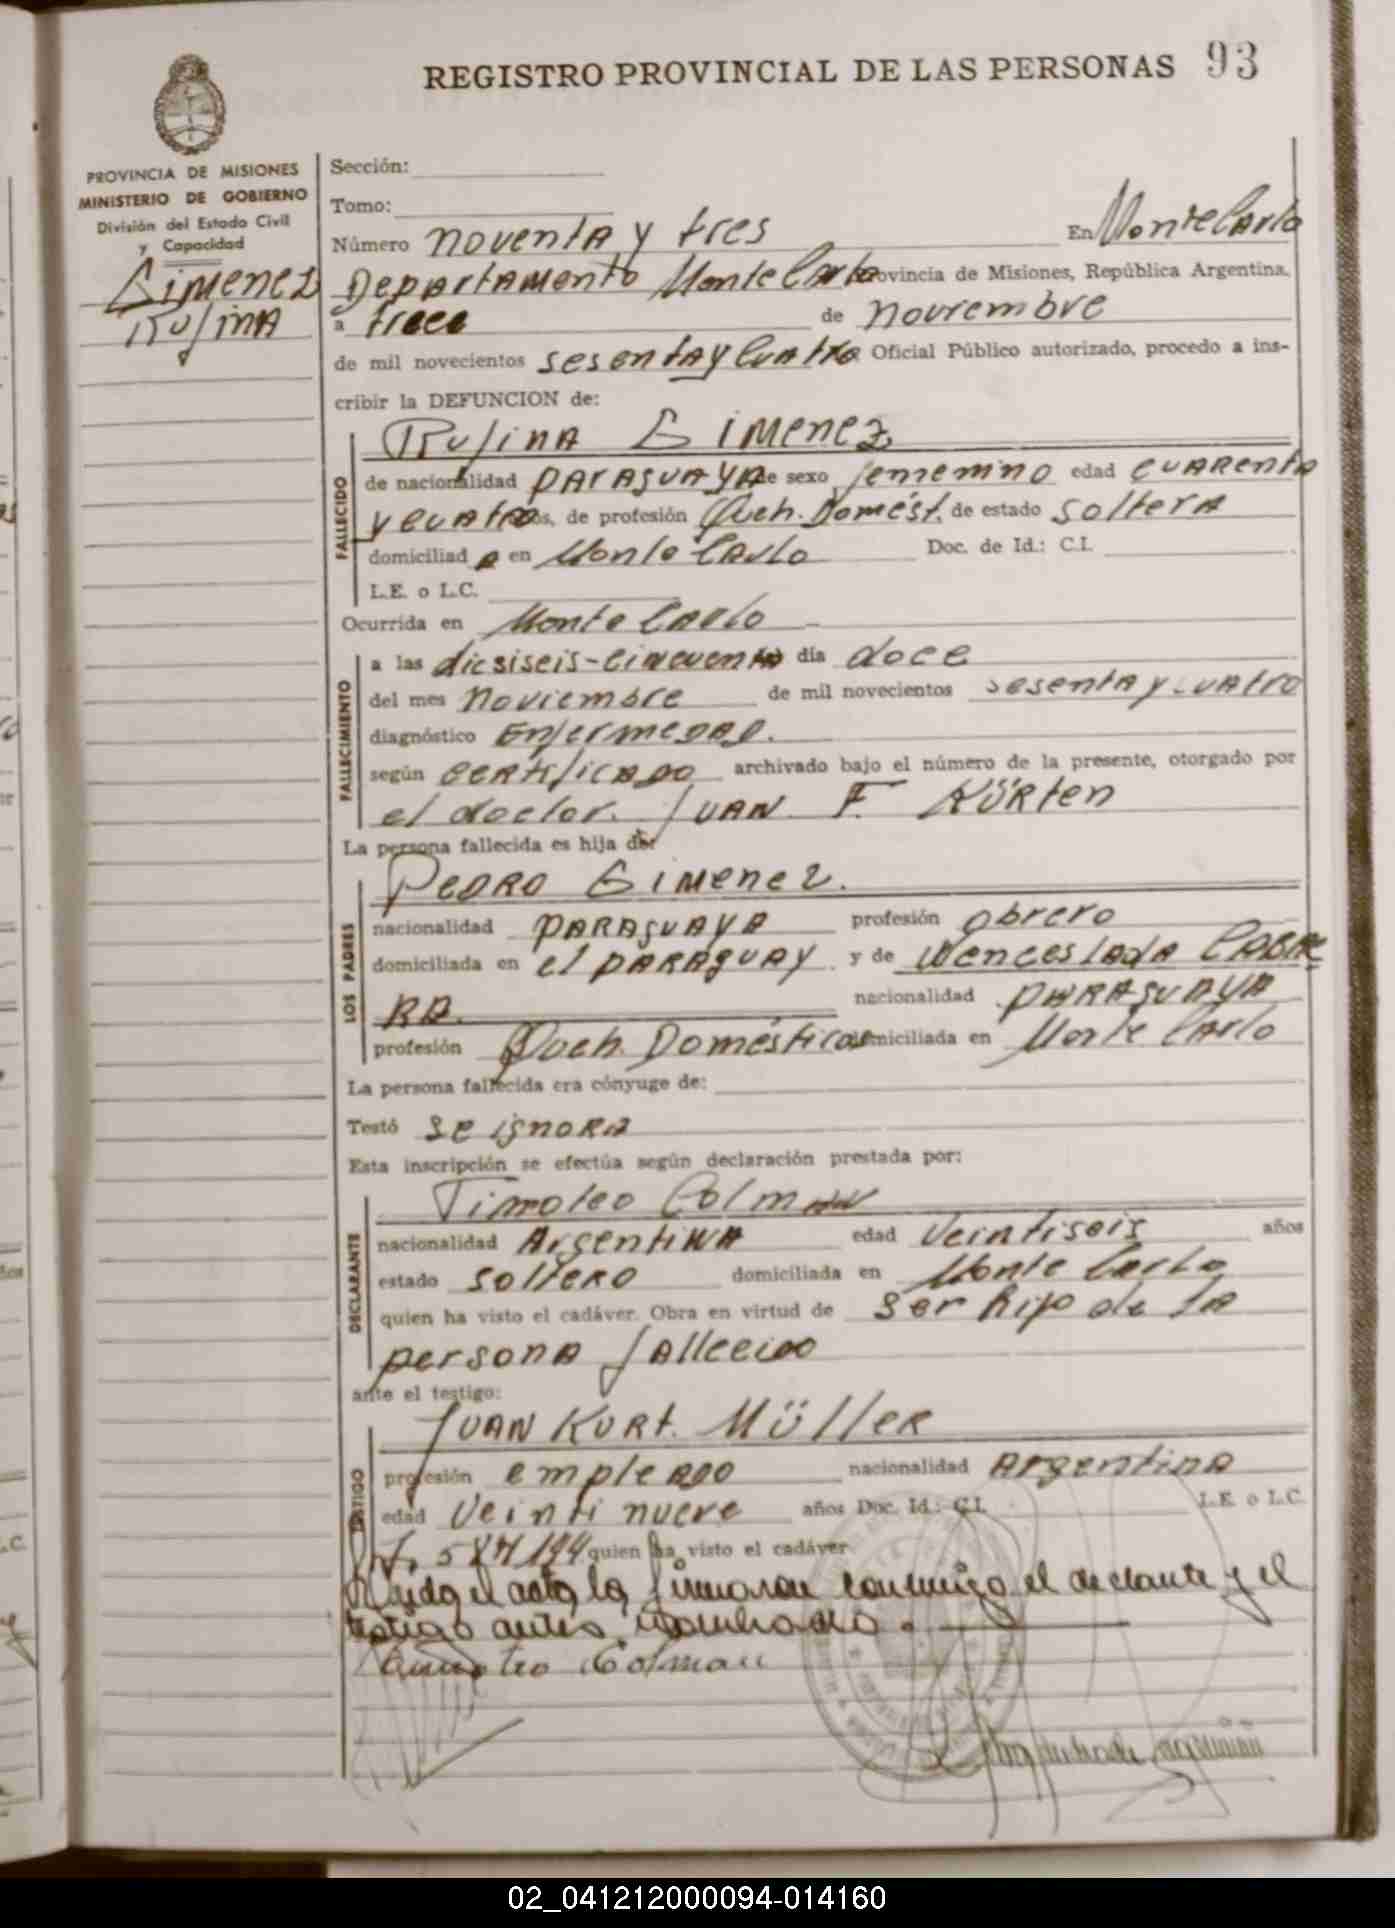 REGISTRO PROVINCIAL DE LAS PERSONAS 93
PROVINCIA DE MISIONES
MINISTERIO DE GOBIERNO
División del Estado Civil
y Capacidad
Gimenez
Rufina
Sección:
Tomo:
Número noventa y tres En Monte Carlo
Departamento Monte Carlo Provincia de Misiones, República Argentina,
a trece de noviembre
de mil novecientos sesenta y cuatro Oficial Público autorizado, procedo a ins-
cribir la DEFUNCION de:
Rufina Gimenez
FALLECIDO
de nacionalidad paraguaya de sexo femenino edad cuarenta
y cuatro años, de profesión Queh. Domést. de estado soltera
domiciliad a en Monte Carlo Doc. de Id.: C.I.
L.E. o L.C.
Ocurrida en Monte Carlo
FALLECIMIENTO
a las diesiseis-cincuenta día doce
del mes noviembre de mil novecientos sesenta y cuatro
diagnóstico Enfermedad.
según certificado archivado bajo el número de la presente, otorgado por
el doctor. Juan F. Kürten
La persona fallecida es hija de:
LOS PADRES
Pedro Gimenez.
nacionalidad paraguaya profesión obrero
domiciliada en el paraguay y de Wenceslada Cabre
ra. nacionalidad paraguaya
profesión Queh. Domésticos domiciliada en Monte Carlo
La persona fallecida era cónyuge de:
Testó se ignora
Esta inscripción se efectúa según declaración prestada por:
DECLARANTE
Timoteo Colman
nacionalidad Argentina edad veintiseis años
estado soltero domiciliada en Monte Carlo
quien ha visto el cadáver. Obra en virtud de ser hijo de la
persona fallecido
ante el testigo:
TESTIGO
Juan Kurt. Müller
profesión empleado nacionalidad Argentina
edad veinti nueve años Doc. Id.: C.I. L.E. o L.C.
quien ha visto el cadáver
Leida el acta la firmaron conmigo el declarante y el
testigo antes nombrado.
Colman
02_041212000094-014160